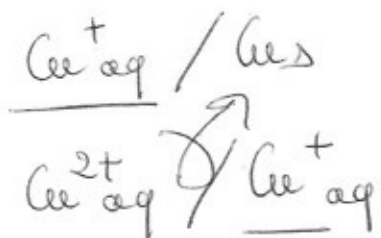 Cu⁺aq / Cus
Cu²⁺aq / Cu⁺aq